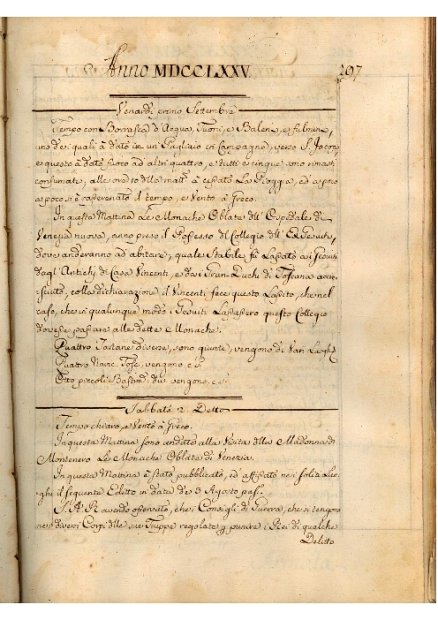 Anno MDCCLXXV.
297
Venerdì primo Settembre
Tempo con Borrasca d'Acqua, Tuoni, e Baleni, e fulmine,
uno de quali à dato in un Pagliaio in Campagna, verso S. Jacopo,
e questo à dato fuoco ad altri quattro, e tutti e cinque sono rimasti
consumati, alle ore della matt.ª à cessato La Pioggia, ed a poco
a poco si è rasserenato il tempo, e Vento à Greco.
In questa Mattina Le Monache Oblate dell' Ospedale di
Venezia nuova, anno preso il Possesso del Collegio dell' Ex Gesuiti,
dove anderanno ad abitare, quale Stabile fù Lassato a i Gesuiti
dagl' Antichi de Casa Vincenti, e da i Gran Duchi di Toscana
colla dichiarazione, il Vincenti fece questo Lascito, che nel
caso, che in qualunque modo i Gesuiti Lassassero questo Collegio
dovesse passare alle dette Monache.
Quattro Tartane diverse, sono giunte, vengono di Vari Luoghi
Quattro Navic. Tosc. vengono c. s.
Otto piccoli Bastim. div. vengono c. s.
Sabbato 2. Detto
Tempo chiaro, e Vento à Greco.
In questa Mattina sono andate alla Visita della Madonna di
Montenero Le Monache Oblate di Venezia.
In questa Mattina è stato pubblicato, ed affissato ne i soliti Luo-
ghi il seguente Editto in data de 3 Agosto pas.
S. A. R. avendo osservato, che i Consigli di Guerra, che si tengono
ne i diversi Corpi delle sue Truppe regolate p. punire i Rei di qualche
Delitto